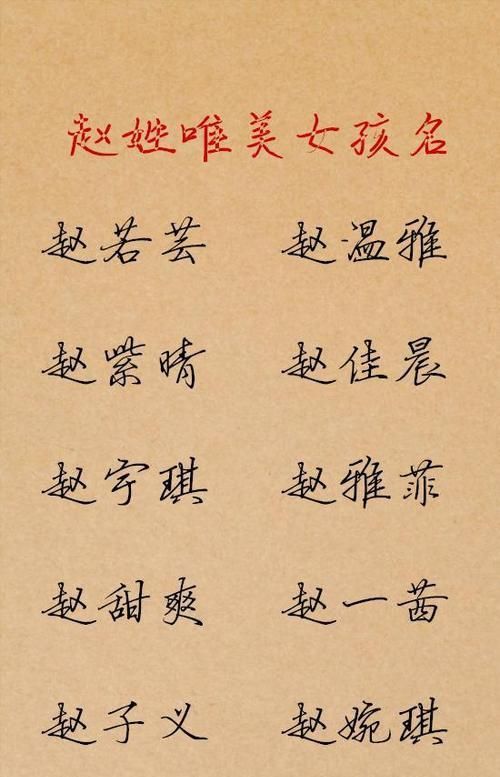 赵姓唯美女孩名
赵若芸 赵温雅
赵紫晴 赵佳晨
赵宇琪 赵雅菲
赵甜爽 赵一茜
赵子义 赵婉琪